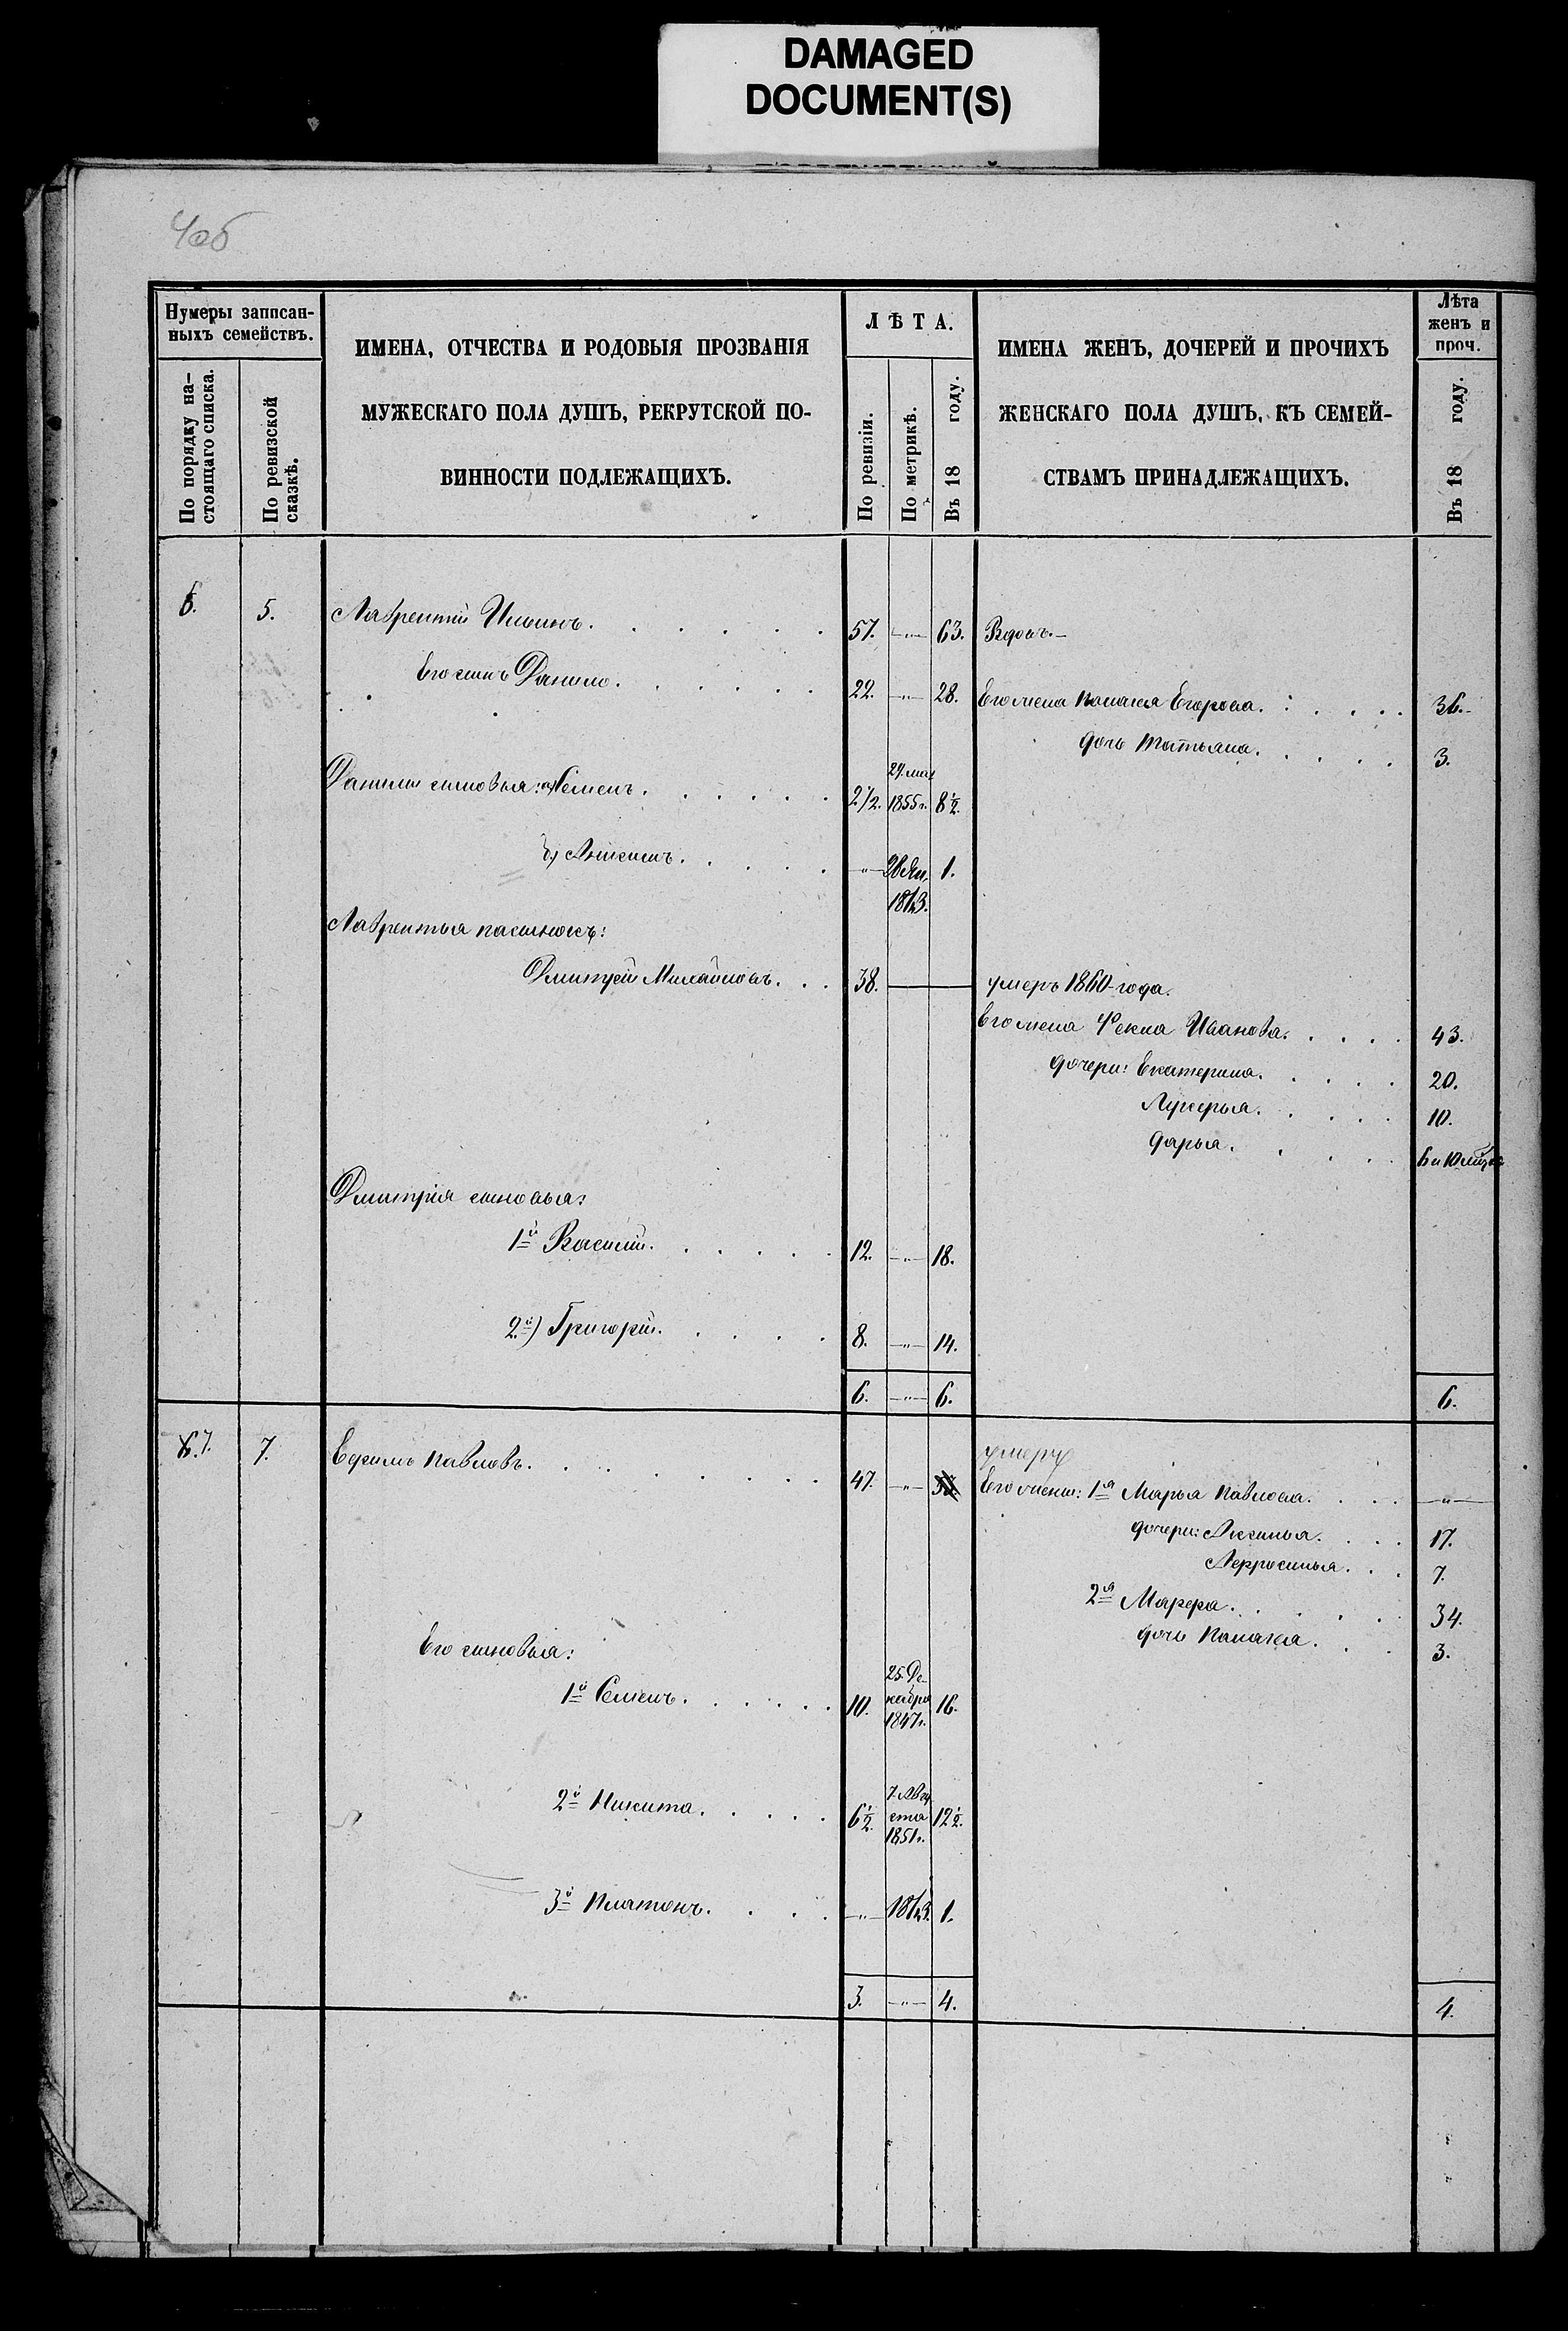 DAMAGED
DOCUMENT(S)
4об
Нумеры записан-
ныхъ семействъ.
По порядку на-
стоящаго списка.
По ревизской
сказкѣ.
ИМЕНА, ОТЧЕСТВА И РОДОВЫЯ ПРОЗВАНІЯ
МУЖЕСКАГО ПОЛА ДУШЪ, РЕКРУТСКОЙ ПО-
ВИННОСТИ ПОДЛЕЖАЩИХЪ.
ЛѢТА.
По ревизіи.
По метрикѣ.
Въ 18 году.
ИМЕНА ЖЕНЪ, ДОЧЕРЕЙ И ПРОЧИХЪ
ЖЕНСКАГО ПОЛА ДУШЪ, КЪ СЕМЕЙ-
СТВАМЪ ПРИНАДЛЕЖАЩИХЪ.
Лѣта
женъ и
проч.
Въ 18 году.
6. 5. Лаврентій Ильинъ. 57. —„— 63. Вдовъ.—
Его сынъ Данило. 22. —„— 28. Его жена Палагея Егорова. 36.
дочь Татьяна. 3.
Данилы сыновья: а) Семенъ. 2 1/2. 24. мая 1855 г. 8 1/2.
б) —„— 28 Ян. 1863. 1.
Лаврентья пасынокъ:
Дмитрій Михайловъ. 38. — умеръ 1860 года.
Его жена Фекла Иванова. 43.
дочери: Екатерина. 20.
Лукерья. 10.
Дарья. 6 и 10
Дмитрія сыновья:
1й Василій. 12. —„— 18.
2й) Григорій. 8. —„— 14.
6. —„— 6. 6.
7. 7. Ефимъ Павловъ. 47. —„— умеръ
Его жены: 1я Марья Павлова. —„—
дочери: Аксинья. 17.
Афросинья. 7.
2я Марфа. 34.
дочь Палагея. 3.
Его сыновья:
1й Семенъ. 10. 25. Де-
кабря
1847 г. 16.
2й Никита. 6 1/2. 7. Авгу
ста
1851 г. 12 1/2.
3й Платонъ. —„— 1863. 1.
3. —„— 4. 4.